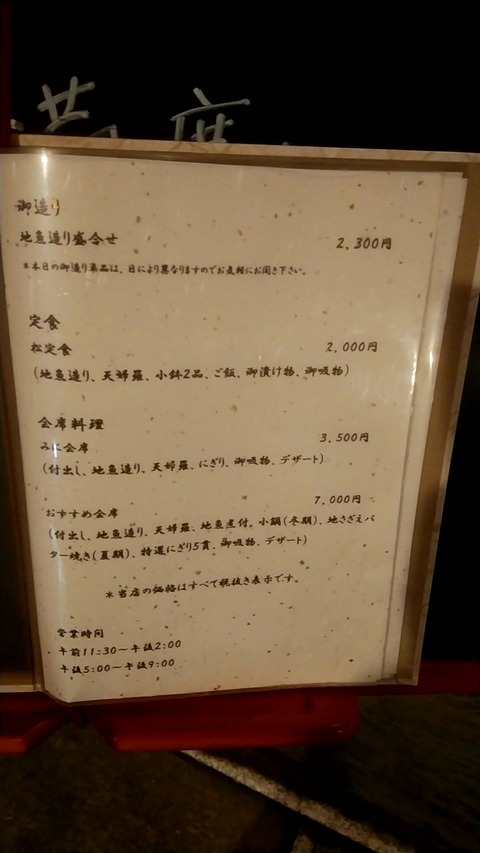 満席
御造り
地魚造り盛合せ
2,300円
*本日の御造り単品は、日により異なりますのでお気軽にお聞き下さい。
定食
松定食
2,000円
(地魚造り、天婦羅、小鉢2品、ご飯、御漬け物、御吸物)
会席料理
ミニ会席
3,500円
(付出し、地魚造り、天婦羅、にぎり、御吸物、デザート)
おすすめ会席
7,000円
(付出し、地魚造り、天婦羅、地魚煮付、小鍋(冬期)、地さざえバ
ター焼き(夏期)、特選にぎり5貫、御吸物、デザート)
*当店の価格はすべて税抜き表示です。
営業時間
午前11:30〜午後2:00
午後5:00〜午後9:00